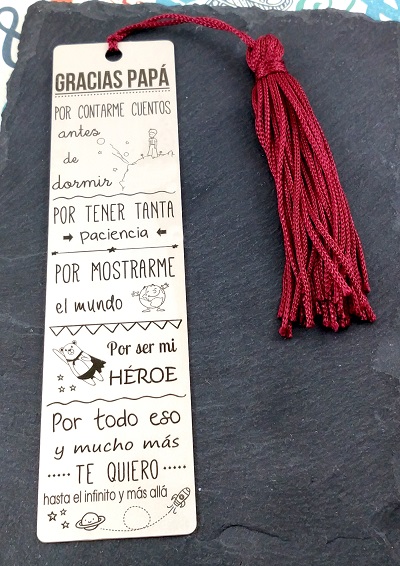 GRACIAS PAPÁ
POR CONTARME CUENTOS
antes
de
dormir
POR TENER TANTA
paciencia
POR MOSTRARME
el mundo
Por ser mi
HÉROE
Por todo eso
y mucho más
TE QUIERO
hasta el infinito y más allá